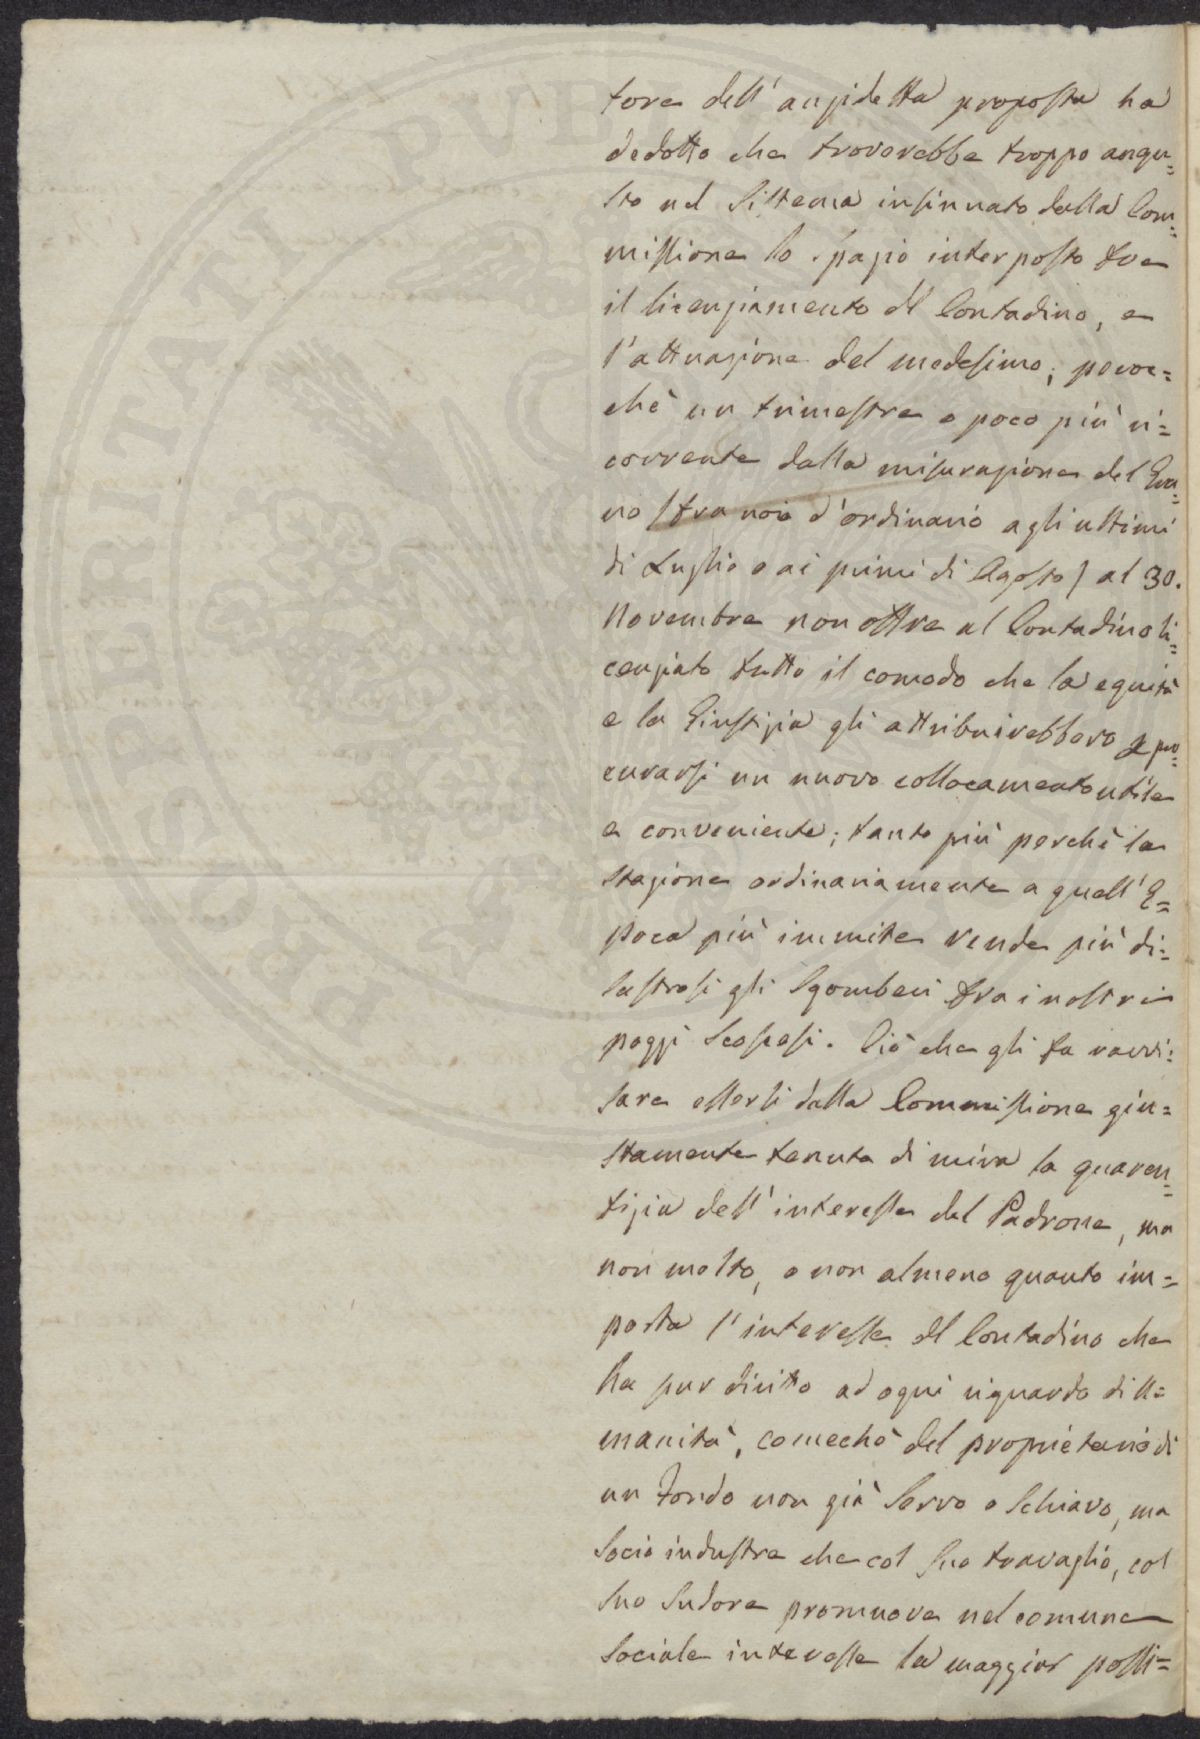 tore dell'anzidetta proposta ha
dedotto che troverebbe troppo angu=
sto nel Sistema insinuato dalla Com=
missione lo spazio interposto tra
il licenziamento del Contadino, e
l'attuazione del medesimo; peroc=
chè un trimestre o poco più ri=
corrente dalla misurazione del Gra=
no (tra noi d'ordinario agli ultimi
di Luglio o ai primi di Agosto) al 30.
Novembre non offre al Contadino li=
cenziato tutto il comodo che la equità
e la Giustizia gli attribuirebbero p pro=
curarsi un nuovo collocamento utile
e conveniente; tanto più perchè la
stagione ordinariamente a quell'E=
poca più immite rende più di=
sastrosi gli Sgomberi tra i nostri
poggi scoscesi. Ciò che gli fa ravvi=
sare essersi dalla Commissione giu=
stamente tenuta di mira la guaren=
tigia dell'interesse del Padrone, ma
non molto, o non almeno quanto im=
porta l'interesse del Contadino che
ha pur diritto ad ogni riguardo di U=
manità, comechè del proprietario di
un Fondo non già Servo o Schiavo, ma
Socio industre che col suo travaglio, col
suo Sudore promuove nel comune
Sociale interesse la maggior possi=
PUBLIC